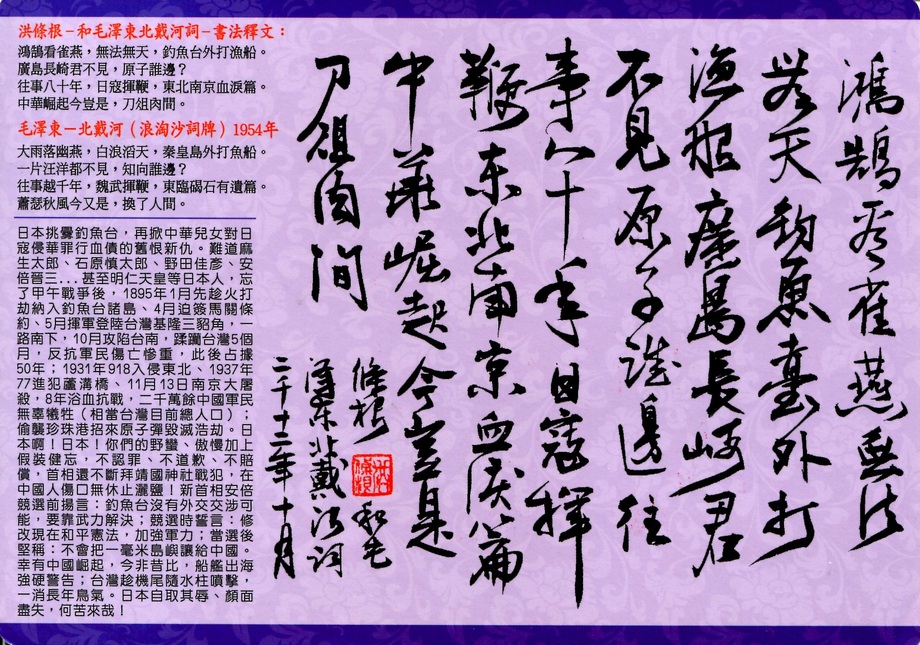 洪條根－和毛澤東北戴河詞－書法釋文：
鴻鵠看雀燕，無法無天，釣魚台外打漁船。
廣島長崎君不見，原子誰邊？
往事八十年，日寇揮鞭，東北南京血淚篇。
中華崛起今豈是，刀俎肉間。
毛澤東－北戴河（浪淘沙詞牌）1954年
大雨落幽燕，白浪滔天，秦皇島外打魚船。
一片汪洋都不見，知向誰邊？
往事越千年，魏武揮鞭，東臨碣石有遺篇。
蕭瑟秋風今又是，換了人間。
日本挑釁釣魚台，再掀中華兒女對日
寇侵華罪行血債的舊恨新仇。難道麻
生太郎、石原慎太郎、野田佳彥、安
倍晉三...甚至明仁天皇等日本人，忘
了甲午戰爭後，1895年1月先趁火打
劫納入釣魚台諸島、4月迫簽馬關條
約、5月揮軍登陸台灣基隆三貂角，一
路南下，10月攻陷台南，蹂躪台灣5個
月，反抗軍民傷亡慘重，此後占據
50年；1931年918入侵東北、1937年
77進犯蘆溝橋、11月13日南京大屠
殺，8年浴血抗戰，二千萬餘中國軍民
無辜犧牲（相當台灣目前總人口）；
偷襲珍珠港招來原子彈毀滅浩劫。日
本啊！日本！你們的野蠻、傲慢加上
假裝健忘，不認罪、不道歉、不賠
償，首相還不斷拜靖國神社戰犯，在
中國人傷口無休止灑鹽！新首相安倍
競選前揚言：釣魚台沒有外交交涉可
能，要靠武力解決；競選時誓言：修
改現在和平憲法，加強軍力；當選後
堅稱：不會把一毫米島嶼讓給中國。
幸有中國崛起，今非昔比，船艦出海
強硬警告；台灣趁機尾隨水柱噴擊，
一消長年鳥氣。日本自取其辱、顏面
盡失，何苦來哉！
鴻鵠看雀燕無法
無天釣魚臺外打
漁船廣島長崎君
不見原子誰邊往
事八十年日寇揮
鞭東北南京血淚篇
中華崛起今豈是
刀俎肉間
條根和毛
澤東北戴河詞
二千十二年十月